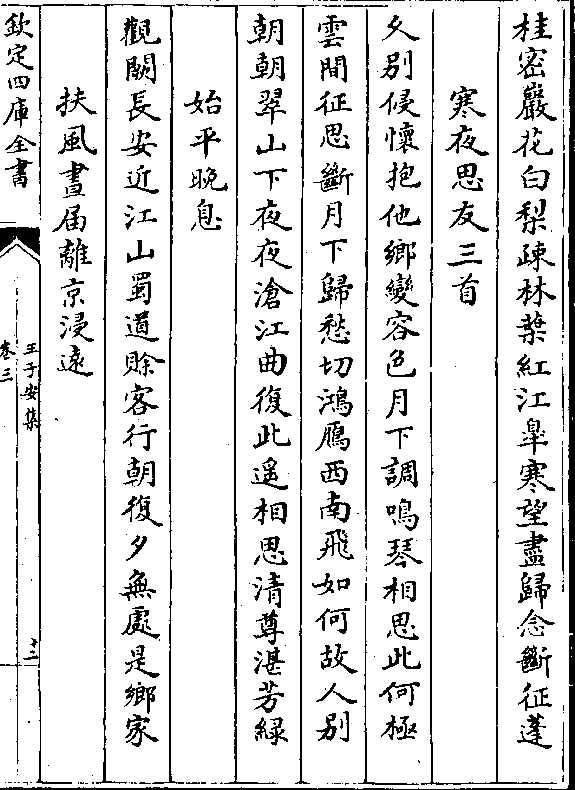 桂宻巖花白梨疎林葉紅江臯寒望盡歸念斷征蓬
寒夜思友三首
乆别侵懷抱他鄉變容色月下調鳴琴相思此何極
雲間征思斷月下歸愁切鴻鴈西南飛如何故人别
朝朝翠山下夜夜滄江曲復此遥相思清尊湛芳緑
始平晚息
觀闕長安近江山蜀道賒客行朝復夕無處是鄉家
扶風晝届離京浸逺
欽定四庫全書
王子安集
卷三
十二